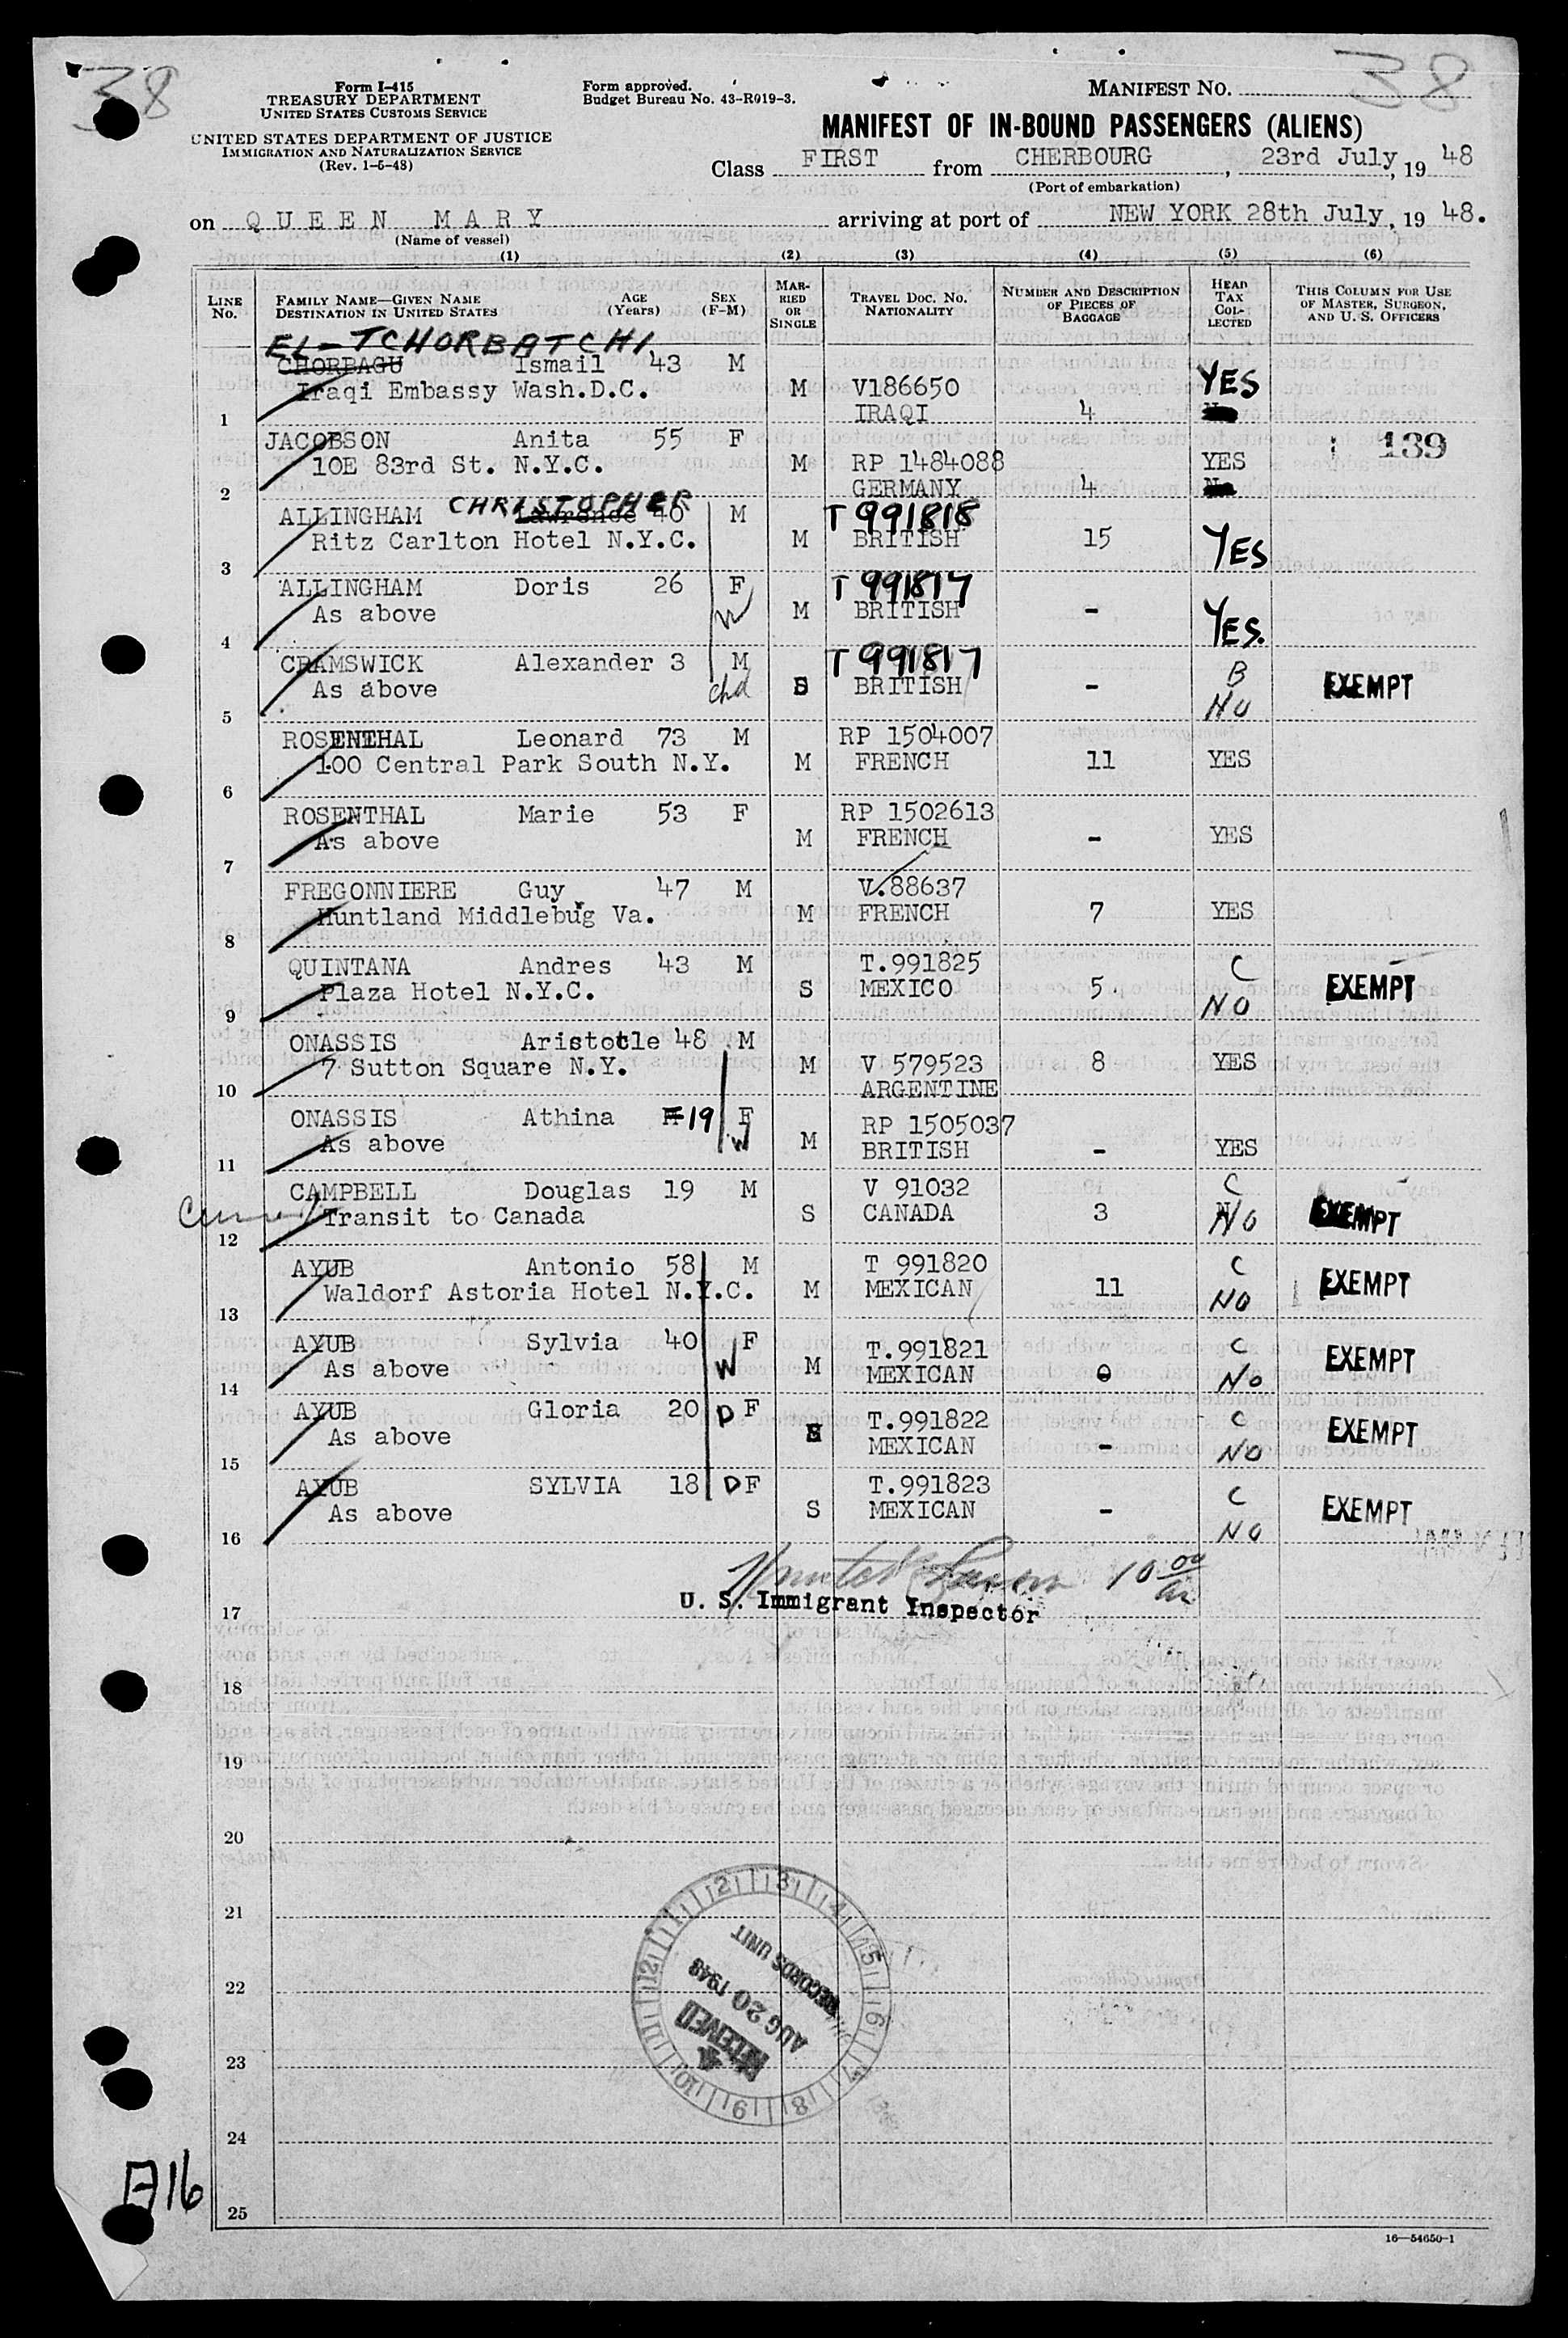 38
38
Form I-415
TREASURY DEPARTMENT
UNITED STATES CUSTOMS SERVICE
UNITED STATES DEPARTMENT OF JUSTICE
IMMIGRATION AND NATURALIZATION SERVICE
(Rev. 1-5-48)
Form approved.
Budget Bureau No. 43-R019-3.
MANIFEST NO.
MANIFEST OF IN-BOUND PASSENGERS (ALIENS)
Class FIRST from CHERBOURG, 23rd July, 19 48
(Port of embarkation)
on QUEEN MARY arriving at port of NEW YORK 28th July, 19 48.
(Name of vessel)
(1) (2) (3) (4) (5) (6)
LINE No. FAMILY NAME—GIVEN NAME DESTINATION IN UNITED STATES AGE (Years) SEX (F-M) MARRIED OR SINGLE TRAVEL DOC. NO. NATIONALITY NUMBER AND DESCRIPTION OF PIECES OF BAGGAGE HEAD TAX COLLECTED THIS COLUMN FOR USE OF MASTER, SURGEON, AND U. S. OFFICERS
EL-TCHORBATCHI
CHORBAGU Ismail 43 M YES
Iraqi Embassy Wash.D.C. M V186650
1 IRAQI 4 No
JACOBSON Anita 55 F 139
10E 83rd St. N.Y.C. M RP 1484088 YES
2 GERMANY 4 No
CHRISTOPHER
ALLINGHAM Lawrence 40 M T 991818
Ritz Carlton Hotel N.Y.C. M BRITISH 15 YES
3
ALLINGHAM Doris 26 F T 991817
As above W M BRITISH - YES.
4
CRAMSWICK Alexander 3 M T 991817 B
As above chd S BRITISH - NO EXEMPT
5
ROSENTHAL Leonard 73 M RP 1504007
100 Central Park South N.Y. M FRENCH 11 YES
6
ROSENTHAL Marie 53 F RP 1502613
As above M FRENCH - YES
7
FREGONNIERE Guy 47 M V.88637
Huntland Middlebug Va. M FRENCH 7 YES
8
QUINTANA Andres 43 M T.991825 C
Plaza Hotel N.Y.C. S MEXICO 5 NO EXEMPT
9
ONASSIS Aristotle 48 M
7 Sutton Square N.Y. M V 579523 8 YES
10 ARGENTINE
ONASSIS Athina 19 F RP 1505037
As above W M BRITISH - YES
11
CAMPBELL Douglas 19 M V 91032 C
Transit to Canada S CANADA 3 NO EXEMPT
12
AYUB Antonio 58 M T 991820 C
Waldorf Astoria Hotel N.Y.C. M MEXICAN 11 NO EXEMPT
13
AYUB Sylvia 40 F T.991821 C
As above W M MEXICAN 0 NO EXEMPT
14
AYUB Gloria 20 D F T.991822 C
As above S MEXICAN - NO EXEMPT
15
AYUB SYLVIA 18 D F T.991823 C
As above S MEXICAN - NO EXEMPT
16
10 00
U. S. Immigrant Inspector
17
18
19
20
21
22
23
24
25
RECORDS UNIT
AUG 20 1948
RECEIVED
1 2 3 4 5 6 7 8 9 10 11 12
A16
16—54650-1